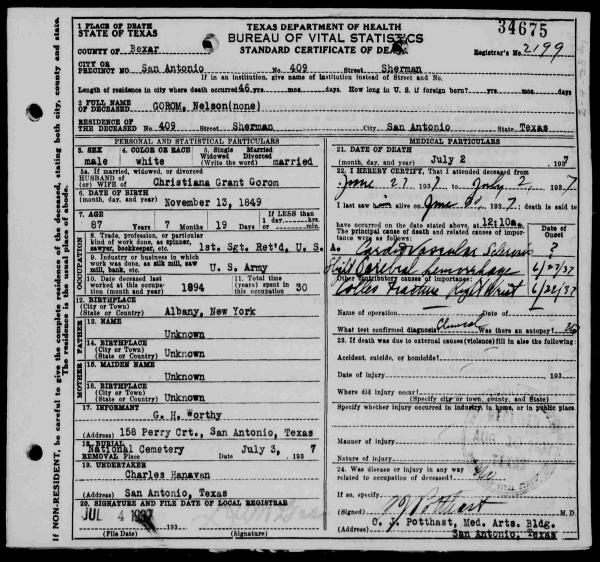 34675
TEXAS DEPARTMENT OF HEALTH
BUREAU OF VITAL STATISTICS
STANDARD CERTIFICATE OF DEATH
Registrar's No. 2199
1 PLACE OF DEATH
STATE OF TEXAS
COUNTY OF Bexar
CITY OR
PRECINCT NO. San Antonio No. 409 Street Sherman
If in an institution, give name of institution instead of Street and No.
Length of residence in city where death occurred 46 yrs. mos. days. How long in U. S. if foreign born? yrs. mos. days.
2 FULL NAME
OF DECEASED GOROM, Nelson(none)
RESIDENCE OF
THE DECEASED No. 409 Street Sherman City San Antonio State Texas
PERSONAL AND STATISTICAL PARTICULARS
3. SEX male
4. COLOR OR RACE white
5. Single Married
Widowed Divorced
(Write the word) married
5a. If married, widowed, or divorced
HUSBAND OF
(or) WIFE OF Christiana Grant Gorom
6. DATE OF BIRTH
(month, day, and year) November 13, 1849
7. AGE
87 Years 7 Months 19 Days
If LESS than
1 day,
hrs.
min.
OCCUPATION
8. Trade, profession, or particular
kind of work done, as spinner,
sawyer, bookkeeper, etc. 1st. Sgt. Ret'd, U. S.
9. Industry or business in which
work was done, as silk mill, saw
mill, bank, etc. U. S. Army
10. Date deceased last
worked at this occupa-
tion (month and year) 1894
11. Total time (years)
spent in this
occupation 30
12. BIRTHPLACE
(City or Town)
(State or Country) Albany, New York
FATHER
13. NAME
Unknown
14. BIRTHPLACE
(City or Town)
(State or Country) Unknown
MOTHER
15. MAIDEN NAME
Unknown
16. BIRTHPLACE
(City or Town)
(State or Country) Unknown
17. INFORMANT
G. H. Worthy
(Address) 158 Perry Crt., San Antonio, Texas
18. BURIAL
National Cemetery July 3, 7
REMOVAL Place Date 193
19. UNDERTAKER
Charles Hanavan
(Address) San Antonio, Texas
20. SIGNATURE AND FILE DATE OF LOCAL REGISTRAR
JUL 4 1937
193
(File Date) (Signature)
MEDICAL PARTICULARS
21. DATE OF DEATH
(month, day, and year) July 2 1937
22. I HEREBY CERTIFY, That I attended deceased from
June 27 1937 to July 2, 1937
I last saw him alive on June 30 1937 death is said to
have occurred on the date stated above at 12:10a m.
The principal cause of death and related causes of importance
were as follows:
Date of
Onset
Cardio Vascular Sclerosis ?
Cerebral hemorrhage 6/22/37
Other contributory causes of importance:
Colles Fracture Right Wrist 6/22/37
Name of operation
Date of
What test confirmed diagnosis? Clinical Was there an autopsy? No
23. If death was due to external causes (violence) fill in also the following:
Accident, suicide, or homicide?
Date of injury 193
Where did injury occur?
(Specify city or town, county, and State)
Specify whether injury occurred in industry, in home, or in public place
Manner of injury
Nature of injury
24. Was disease or injury in any way
related to occupation of deceased? No
If so, specify
(Signed) C J Potthast M. D.
C. J. Potthast, Med. Arts. Bldg.
(Address) San Antonio, Texas
If NON-RESIDENT, be careful to give the complete residence of the deceased, stating both city, county and state.
The residence is the usual place of abode.